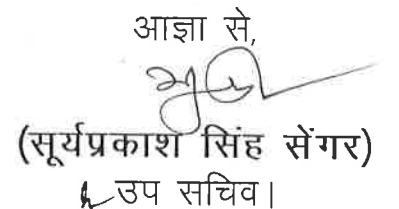 आज्ञा से,
(सूर्यप्रकाश सिंह सेंगर)
उप सचिव।